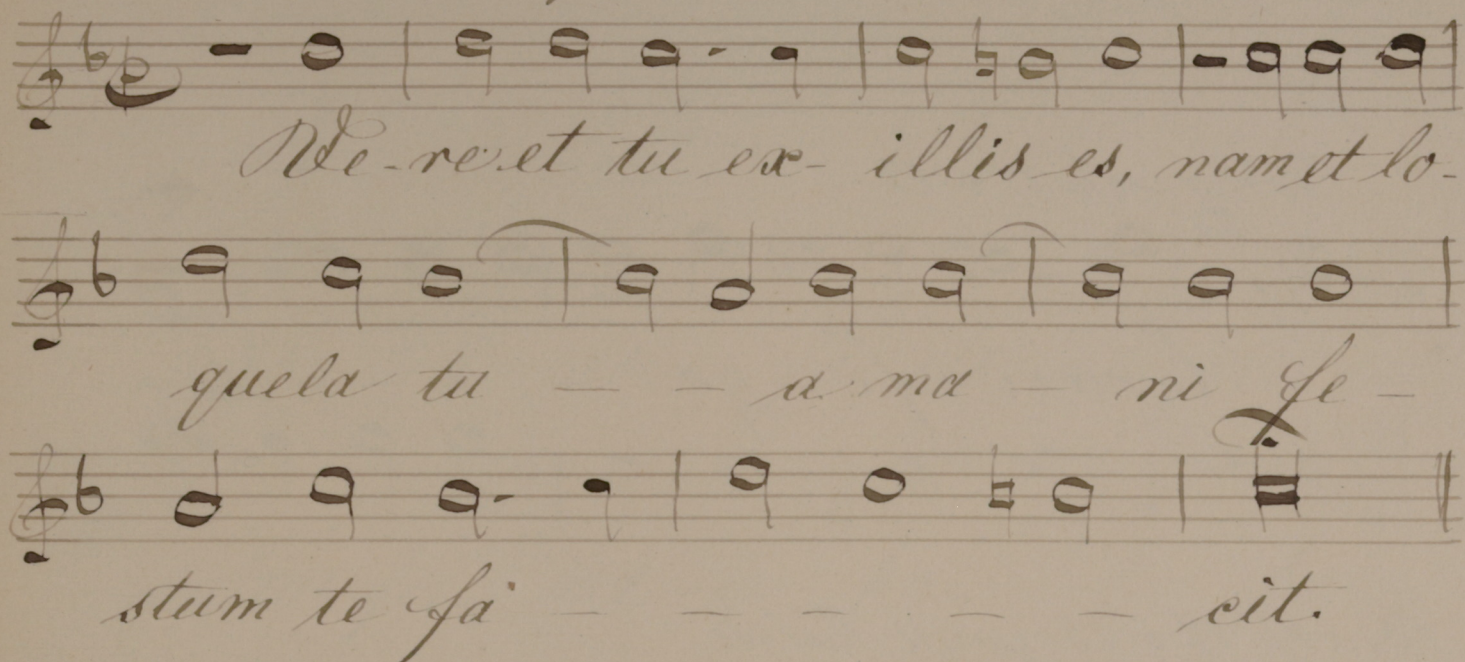 Ve-re et tu ex- illis es, nam et lo-
quela tu — — a ma — ni fe —
stum te fa — — — — — cit.